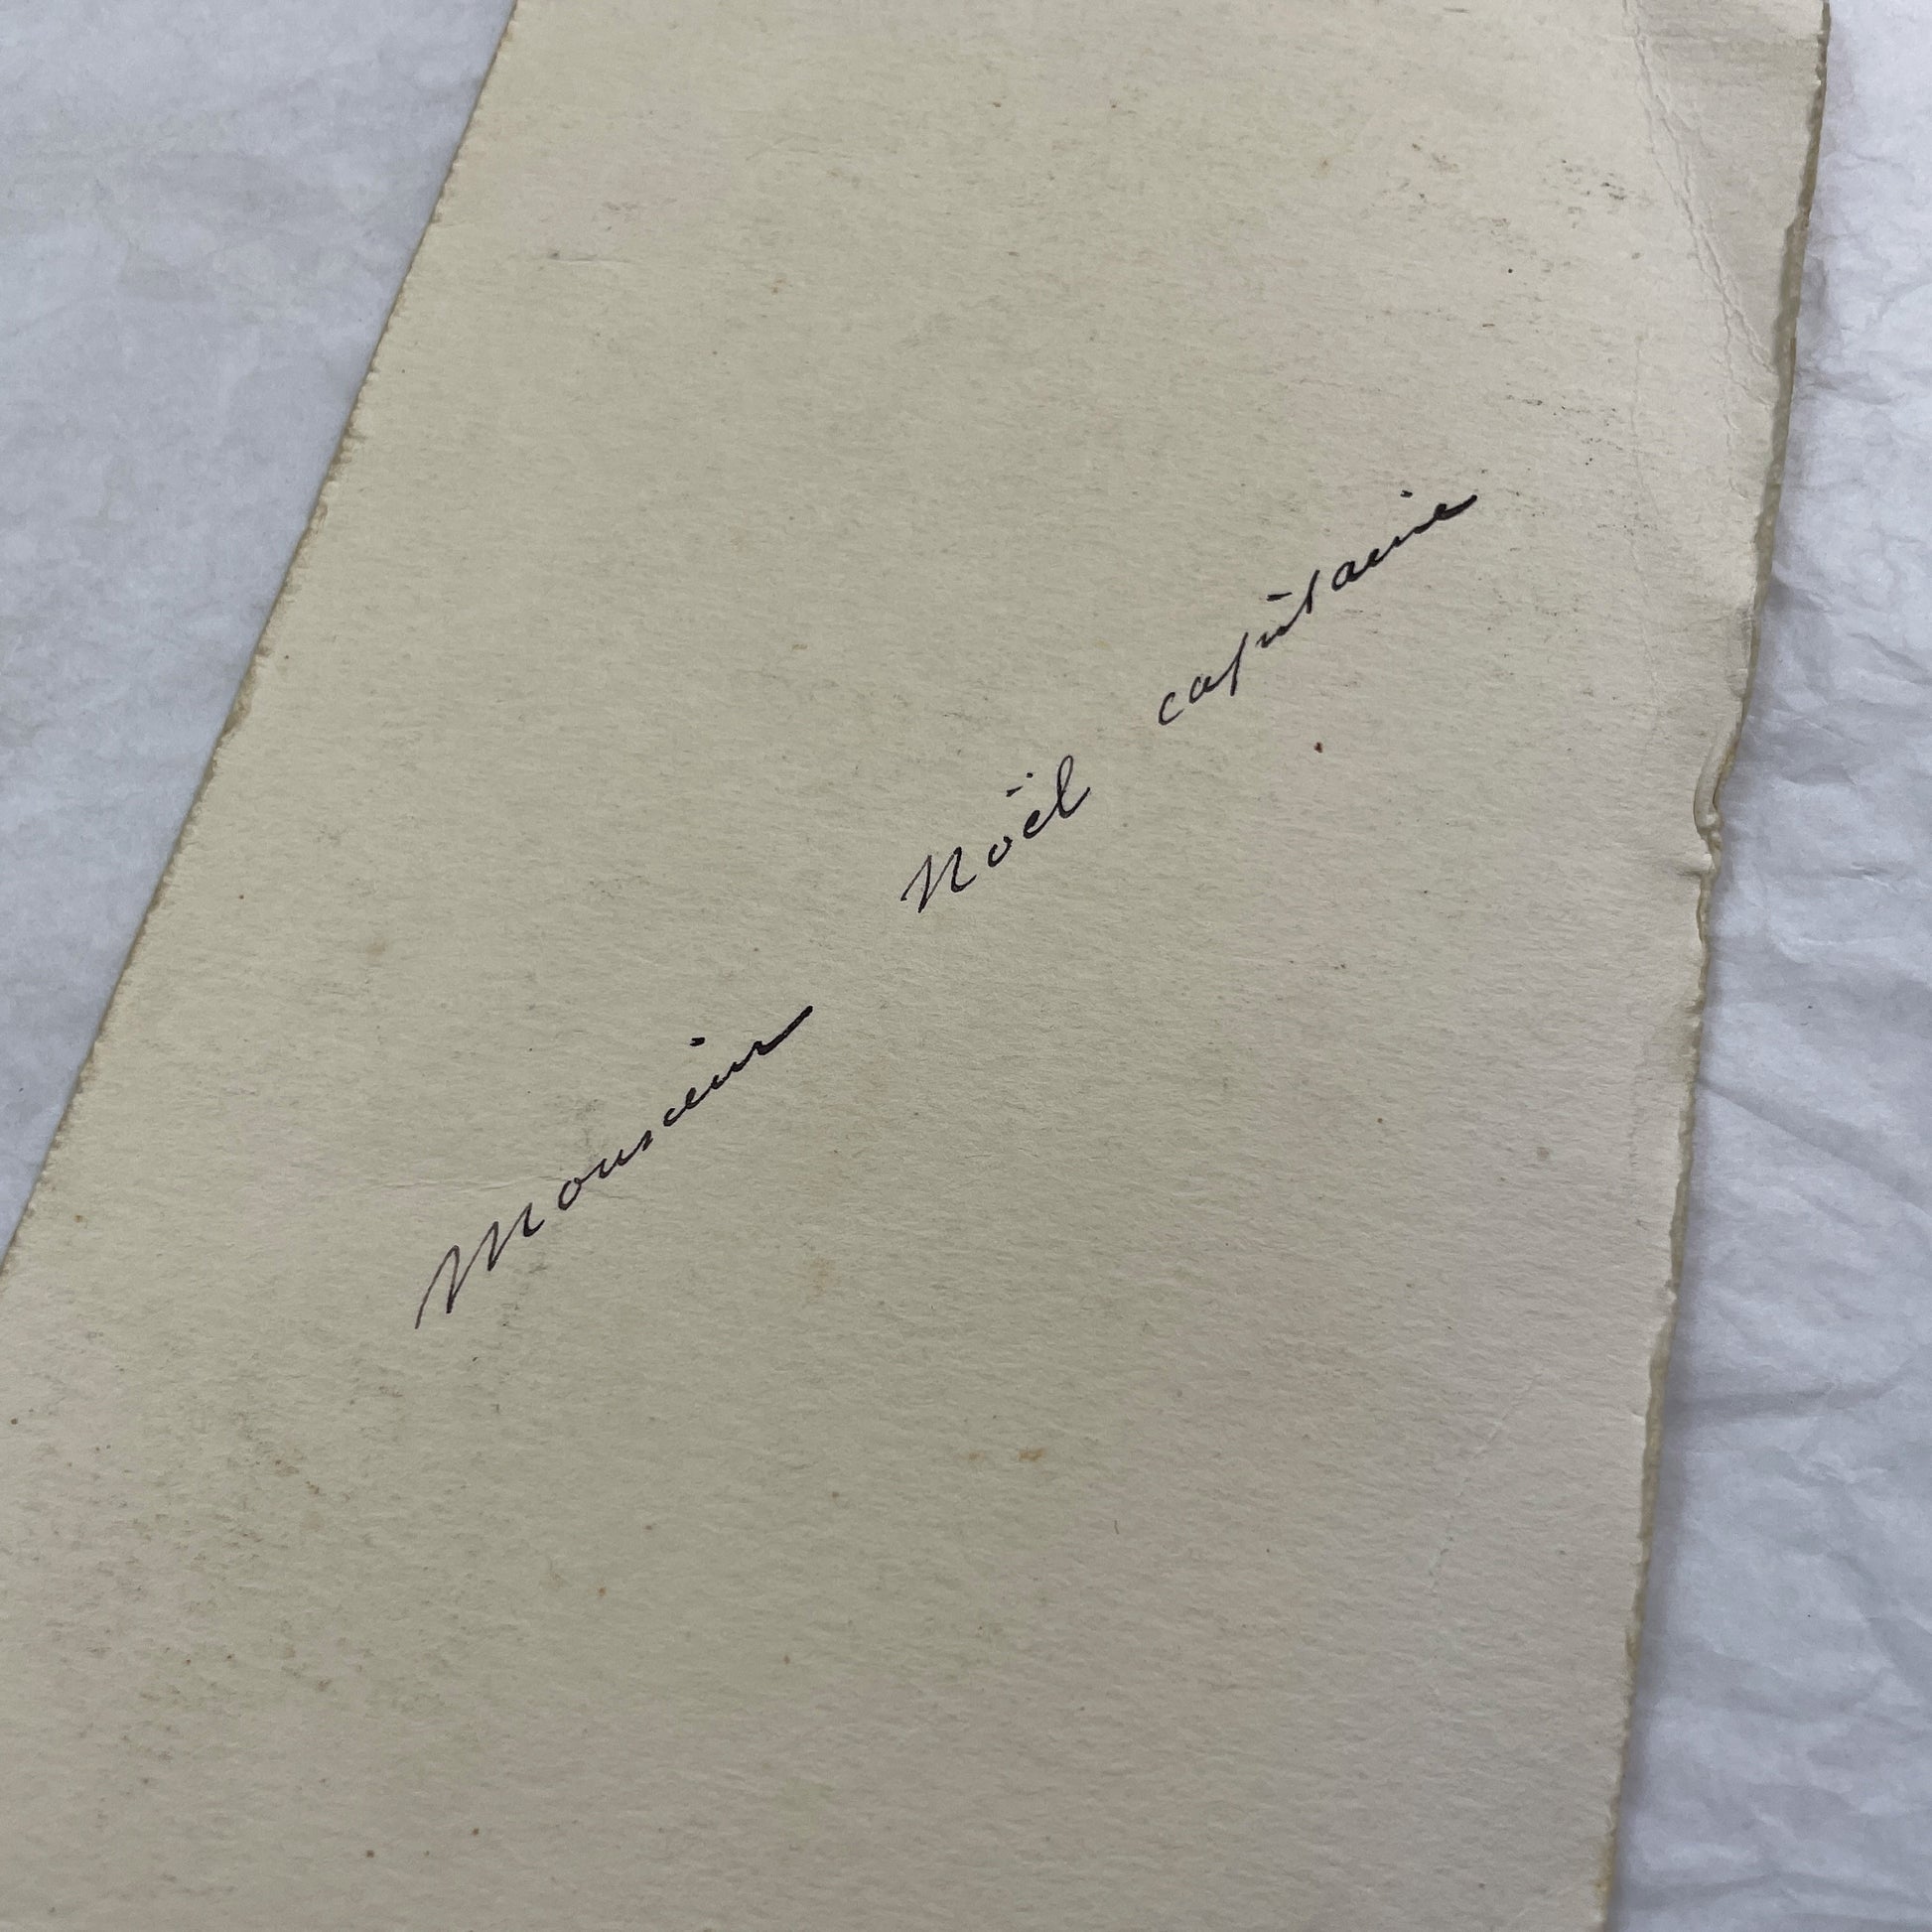 Monsieur Noël capitaine